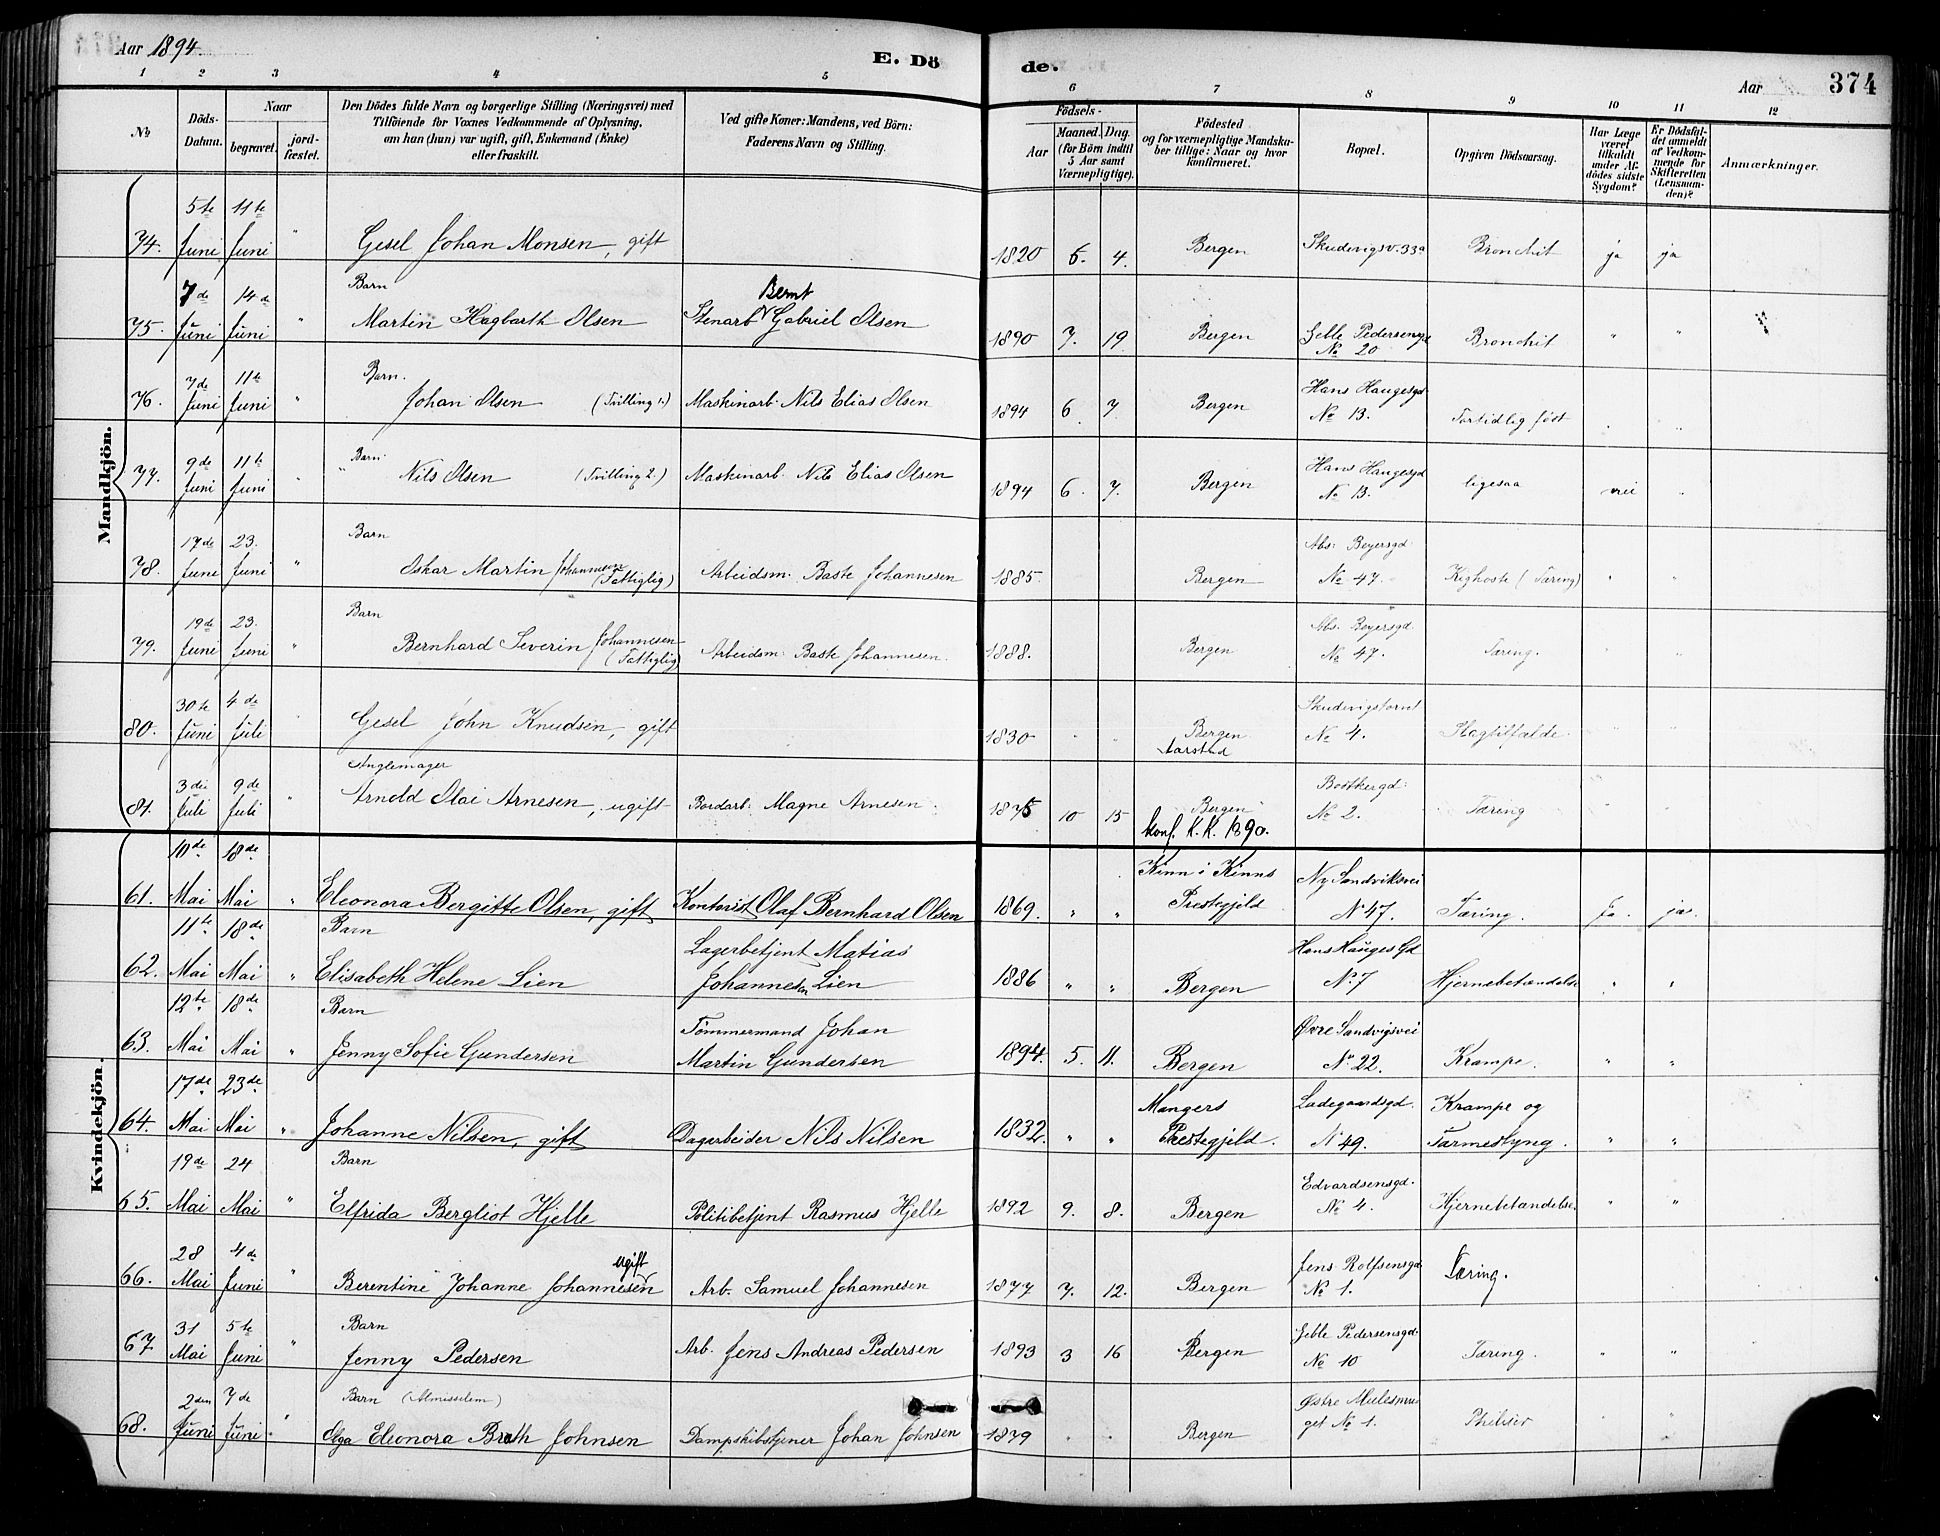 Aar 1894.
E. Dö
de.
Aar
374
1 2 3 4 5 6 7 8 9 10 11 12
No
Döds-Datum.
Naar
begravet.
jord-fæstet.
Den Dödes fulde Navn og borgerlige Stilling (Næringsvei) med
Tilföiende for Voxnes Vedkommende af Oplysning,
om han (hun) var ugift, gift, Enkemand (Enke)
eller fraskilt.
Ved gifte Koner: Mandens, ved Börn:
Faderens Navn og Stilling.
Födsels-
Aar
Maaned. Dag.
(for Börn indtil
5 Aar samt
Værnepligtige).
Födested
og for værnepligtige Mandska-
ber tillige: Naar og hvor
konfirmeret.
Bopæl.
Opgiven Dödsaarsag.
Har Læge
været
tilkaldt
under Af-
dödes sidste
Sygdom?
Er Dödsfal-
det anmeldt
af Vedkom-
mende for
Skifteretten
(Lensman-
den)?
Anmærkninger.
Mandkjön.
5te 11te
74. Juni Juni " Gesel Johan Monsen, gift 1820 6. 4. Bergen Skudevigsv. 33a Bronchit ja ja
7de 14de Barn Bernt
75. Juni Juni " Martin Hagbarth Olsen Stenarb Gabriel Olsen 1890 7. 19 Bergen Geble Pedersensgd No 20 Bronchit " "
7de 11te Barn.
76. Juni Juni " Johan Olsen (Tvilling 1.) Maskinarb. Nils Elias Olsen 1894 6. 7 Bergen Hans Haugesgd No 13. Fortidlig født . "
9de 11te Barn.
77. Juni Juni " Nils Olsen (Tvilling 2.) Maskinarb. Nils Elias Olsen 1894 6. 7. Bergen Hans Haugesgd No 13. ligesaa nei "
17de 23. Barn
78. Juni Juni " Oskar Martin Johannesen (Fattiglig) Arbeidsm. Baste Johannesen 1885. Bergen Abs. Beyersgd. No 47. Kighoste (Tæring) " "
19de 23. Barn
79. Juni Juni " Bernhard Severin Johannesen (Fattiglig) Arbeidsm. Baste Johannesen. 1888. Bergen Abs. Beyersgd. No 47. Tæring. " "
30te 4de
80. Juni Juli Gesel John Knudsen, gift 1830 " " Bergen Aarstad Skudevigstorvet No 4. Slagtilfælde. " "
3die 9de Anglemager
81. Juli Juli " Arnold Olai Arnesen, ugift Bordarb. Magne Arnesen. 1875 10 15 Bergen konf. K.K. 1890. No 2. Tæring " "
Kvindekjön.
10de 18de
61. Mai Mai " Eleonora Bergitte Olsen, gift Kontorist Olaf Bernhard Olsen 1869. " " Kinn i Kinns Prestegjeld Ny Sandviksvei No 47. Tæring. Ja. ja.
11te 18de Barn Lagerbetjent Matias
62. Mai Mai " Elisabeth Helene Lien Johannesen Lien 1886 " " Bergen Hans Hauges Gd No 7 Hjernebetændelse " "
12te 18de Barn Tømmermand Johan
63. Mai Mai " Jenny Sofie Gundersen Martin Gundersen 1894. 5. 11. Bergen Øvre Sandvigsvei No 22. Krampe. " "
17de 23de
64. Mai Mai " Johanne Nilsen, gift Dagarbeider Nils Nilsen 1832. " " Mangers Prestegjeld. Ladegaardsgd. No 49. Krampe og Tarmeslyng. " "
19de 24 Barn
65. Mai Mai " Elfrida Bergliot Hjelle Politibetjent Rasmus Hjelle 1892 9. 8. Bergen Edvardsensgd. No 4. Hjernebetændelse. " "
28 4de ugift
66. Mai Juni " Berentine Johanne Johannesen Arb. Samuel Johannesen 1877 7. 12. Bergen Jens Rolfsensgd No 1. Tæring.
31 5te Barn
67 Mai Juni " Jenny Pedersen Arb. Jens Andreas Pedersen 1893 3 16 Bergen Geble Pedersensgd. No 10 Tæring. " "
2den 7de Barn
68. Juni Juni " Olga Eleonora Brath Johnsen Dampskibstjener Johan Johnsen 1879 " " Bergen Østre Mulesmuget No 1. "